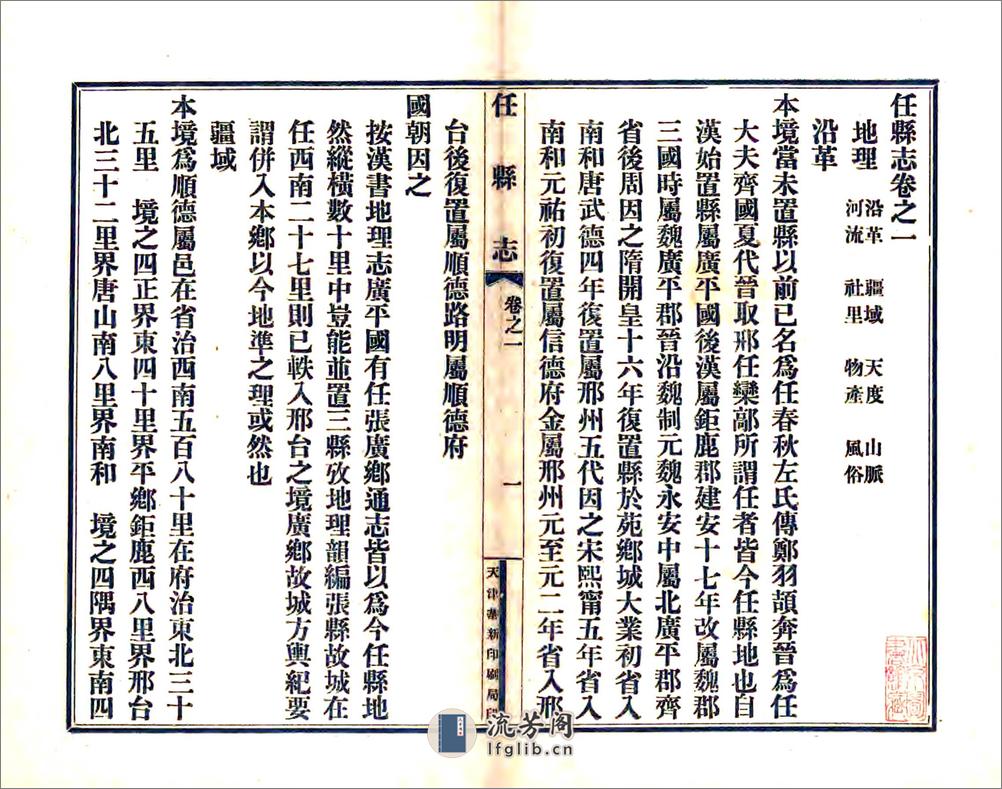 任縣志卷之一
地理 沿革 疆域 天度 山脈
河流 社里 物產 風俗
沿革
本境當未置縣以前已名爲任春秋左氏傳鄭羽頡奔晉爲任
大夫齊國夏代晉取邢任欒鄗所謂任者皆今任縣地也自
漢始置縣屬廣平國後漢屬鉅鹿郡建安十七年改屬魏郡
三國時屬魏廣平郡晉沿魏制元魏永安中屬北廣平郡齊
省後周因之隋開皇十六年復置縣於苑鄉城大業初省入
南和唐武德四年復置屬邢州五代因之宋熙甯五年省入
南和元祐初復置屬信德府金屬邢州元至元二年省入邢
任縣志
卷之一
一
天津華新印刷局印
台後復置屬順德路明屬順德府
國朝因之
按漢書地理志廣平國有任張廣鄉通志皆以爲今任縣地
然縱橫數十里中豈能並置三縣攷地理韻編張縣故城在
任西南二十七里則已軼入邢台之境廣鄉故城方輿紀要
謂併入本鄉以今地準之理或然也
疆域
本境爲順德屬邑在省治西南五百八十里在府治東北三十
五里 境之四正界東四十里界平鄉鉅鹿西八里界邢台
北三十二里界唐山南八里界南和 境之四隅界東南四
流芳阁
lfglib.cn